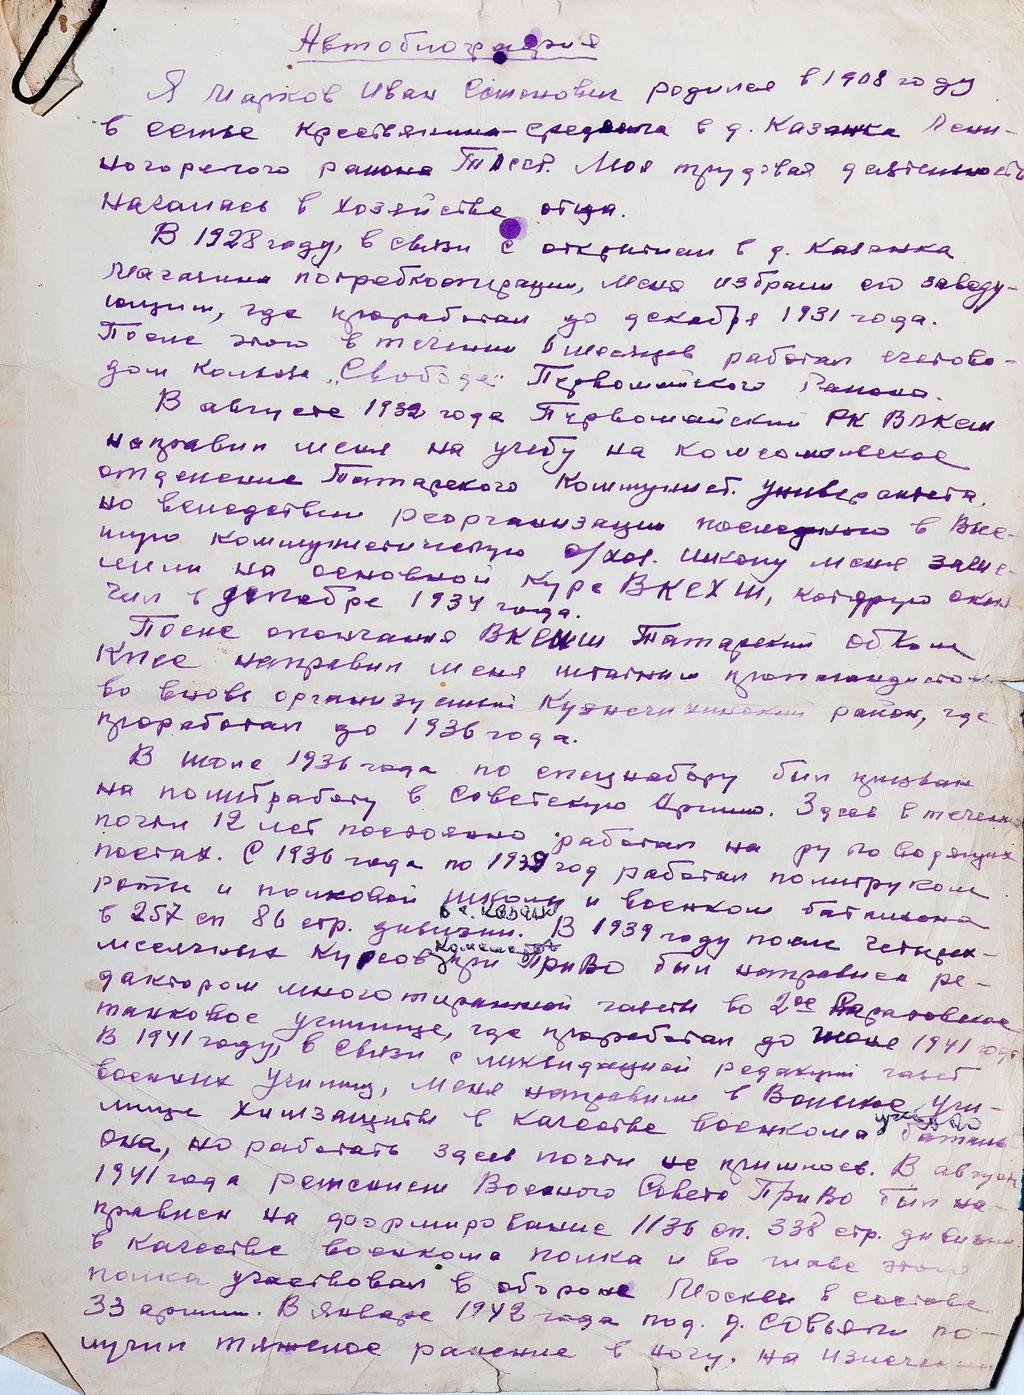 Автобиография
Я Марков Иван Семенович родился в 1908 году
в семье крестьянина-середняка в д. Казанка Лени-
ногорского района ТАССР. Моя трудовая деятельность
началась в хозяйстве отца.
В 1928 году, в связи с открытием в д. Казанка
магазина потребкооперации, меня избрали его заведу-
ющим, где проработал до декабря 1931 года.
После этого в течении 6 месяцев работал счетово-
дом колхоза "Свобода" Первомайского района.
В августе 1932 года Первомайский РК ВЛКСМ
направил меня на учебу на комсомольское
отделение Татарского Коммунист. университета,
но вследствии реорганизации последнего в Выс-
шую коммунистическую с/хоз. школу меня зачис-
лили на основной курс ВКСХШ, которую окон
чил в декабре 1934 года.
После окончания ВКСХШ Татарский обком
КПСС направил меня штатным пропагандистом
во вновь организуемый Кузнечихинский район, где
проработал до 1936 года.
В июне 1936 года по спецнабору был призван
на политработу в Советскую Армию. Здесь в течение
почти 12 лет постоянно работал на руководящих
постах. С 1936 года по 1939 год работал политруком
роты и полковой школы и военком батальона
в 257 сп 86 стр. дивизии. в г. Казани В 1939 году после четырех-
месячных курсов при ПриВо был направлен ре-
дактором многотиражной газеты во 2ое Саратовское
танковое училище, где проработал до июня 1941 года
В 1941 году, в связи с ликвидацией редакций газет
военных училищ, меня направили в Вольское учи-
лище химзащиты в качестве военкома батальо
она, но работать здесь почти не пришлось. В август
1941 года решением Военного Совета ПриВо был на-
правлен на формирование 1136 сп. 338 стр. дивизии
в качестве военкома полка и во главе этого
полка участвовал в обороне Москвы в составе
33 армии. В январе 1942 года под д. Совьяки по-
лучил тяжелое ранение в ногу. На излечении